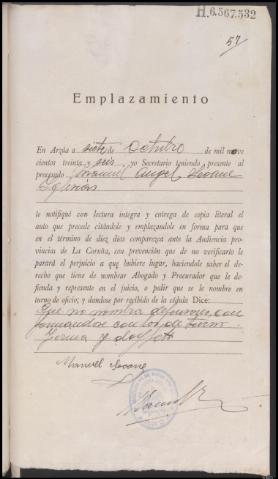 H.6.567.532
57
Emplazamiento
En Arzúa a siete de Octubre de mil nove
cientos treinta y seis yo Secretario teniendo presente al
procesado Manuel Angel Seoane
Iglesias
le notifiqué con lectura íntegra y entrega de copia literal el
auto que precede citándole y emplazándole en forma para que
en el término de diez días comparezca ante la Audiencia provin-
cia de La Coruña, con prevención que de no verificarlo le
parará el perjuicio a que hubiere lugar, haciéndole saber el de-
recho que tiene de nombrar Abogado y Procurador que le de-
fienda y represente en el juicio, o pedir que se le nombre en
turno de oficio; y dandose por recibido de la cédula Dice:
Que no nombra defensores, con
formandose con los de turno
Firma y doy fe
Manuel Seoane